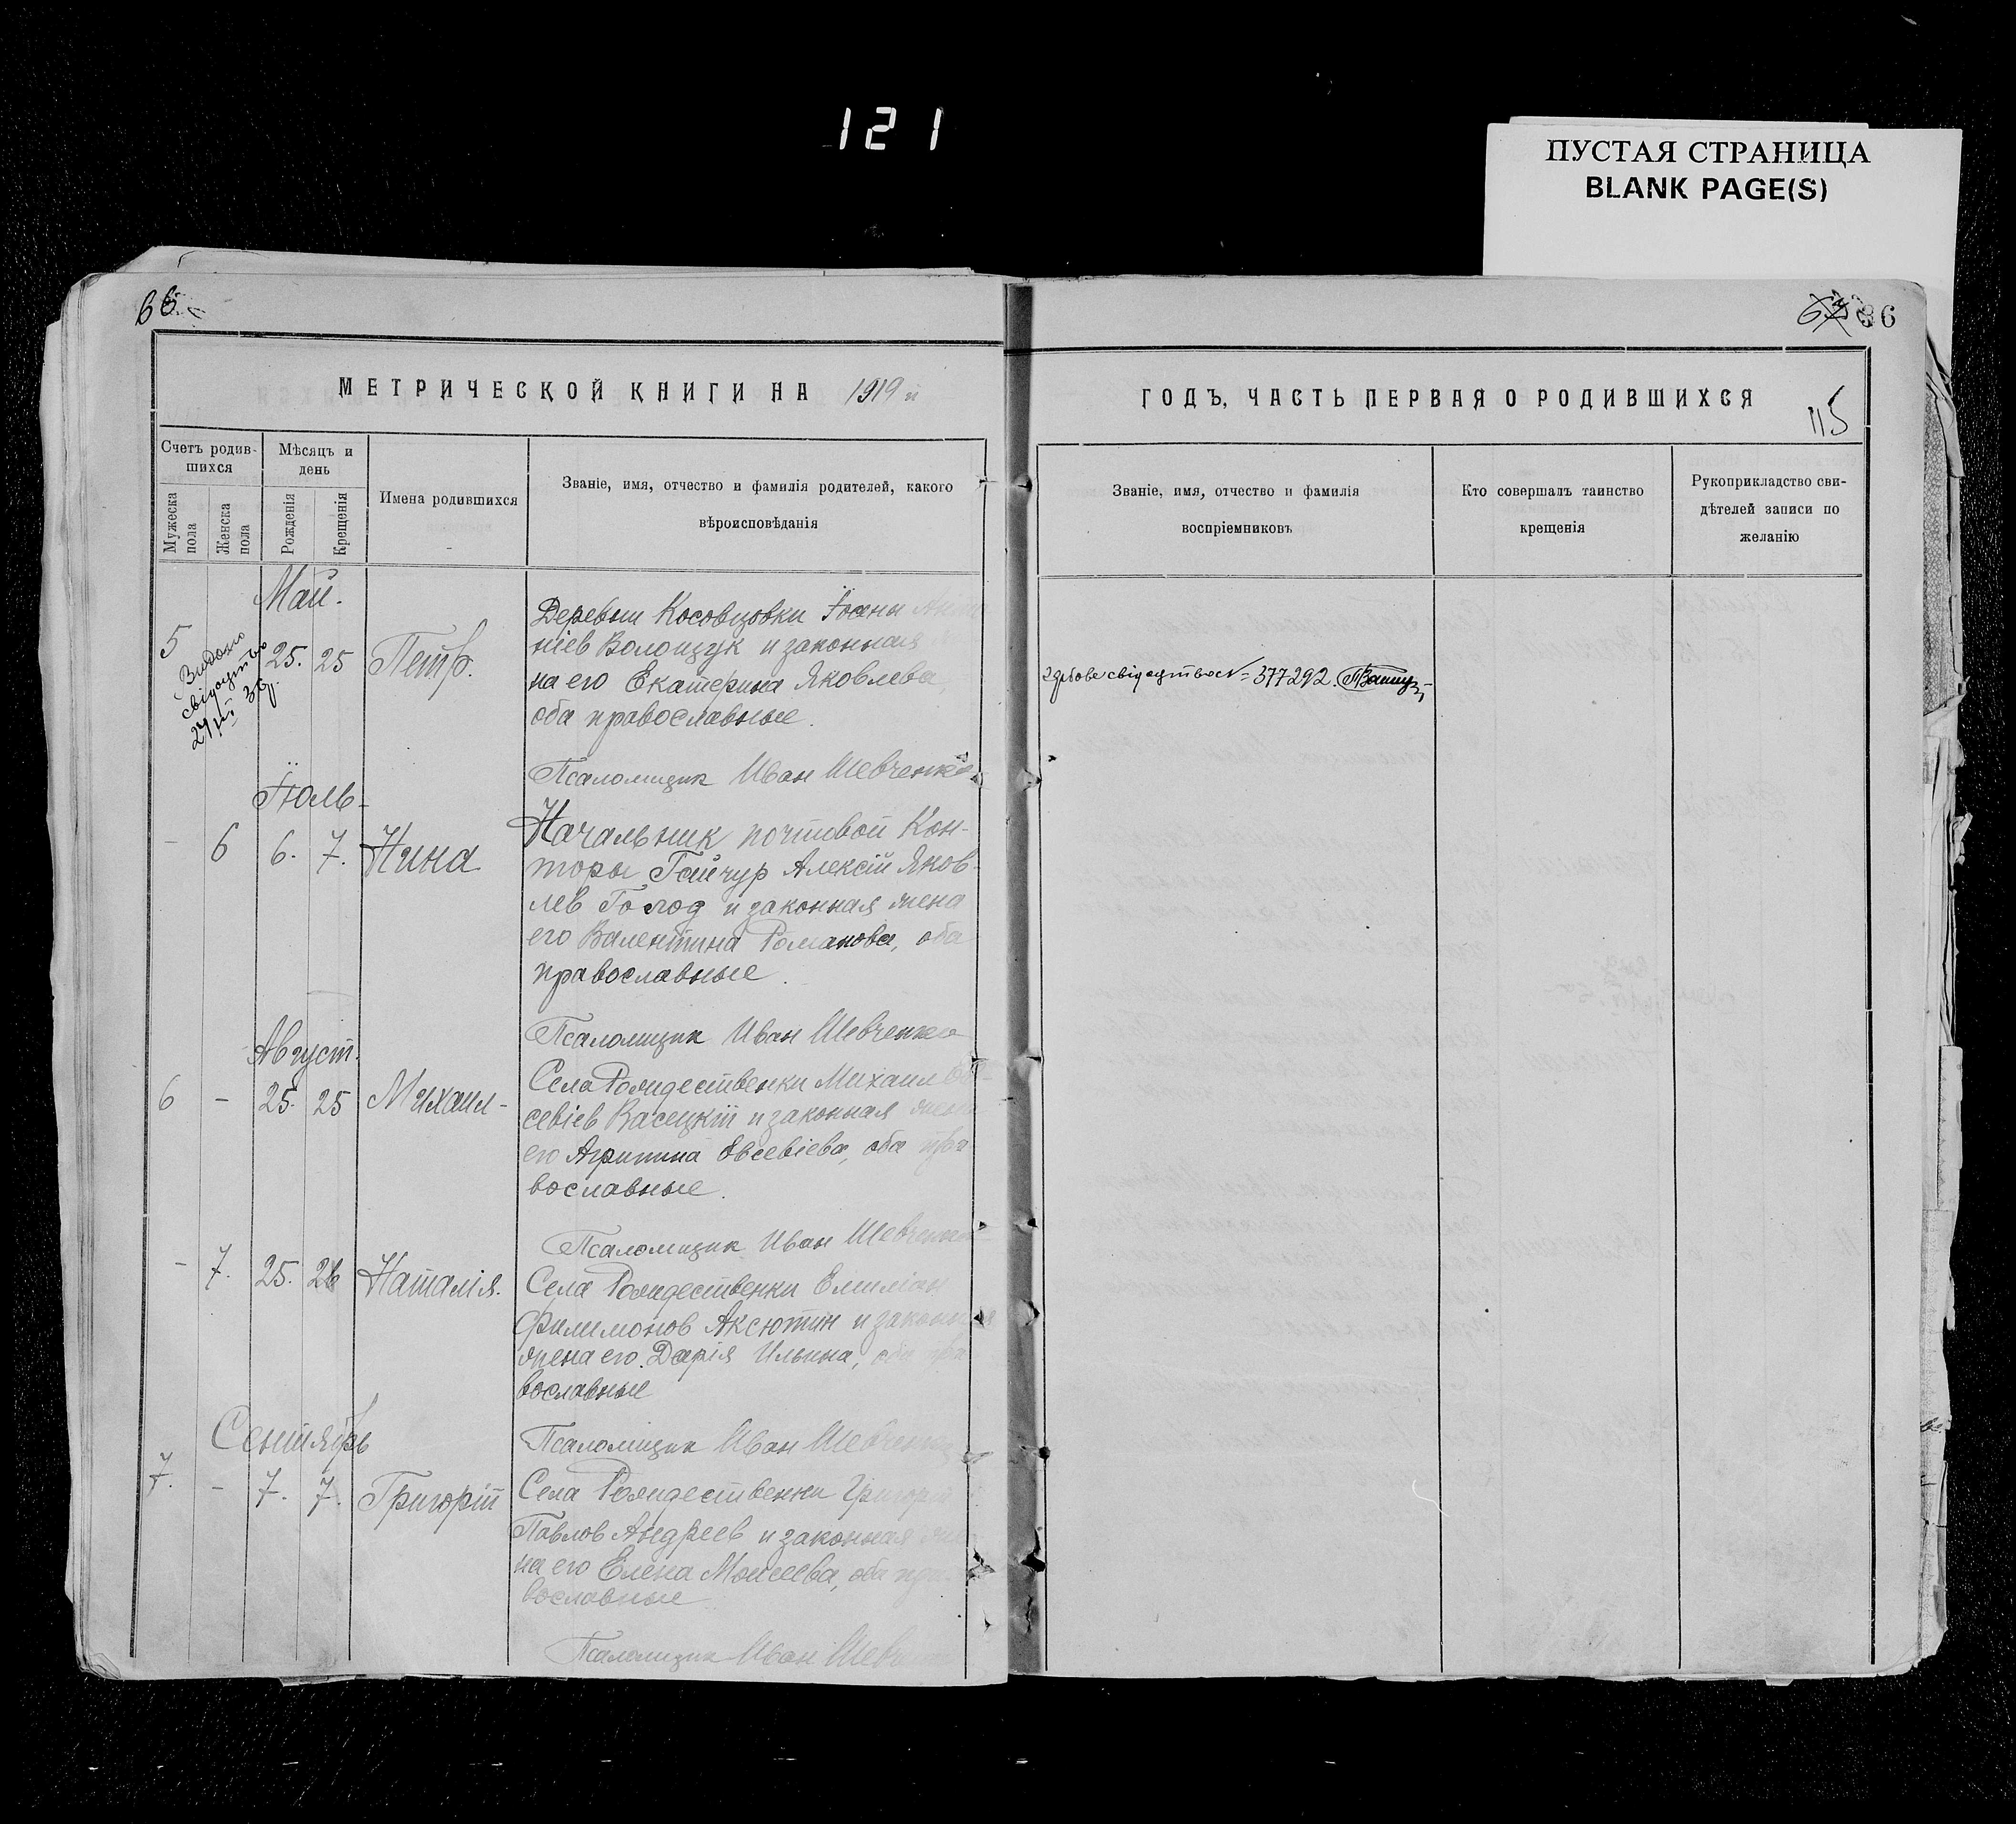 121
ПУСТАЯ СТРАНИЦА
BLANK PAGE(S)
66
86
МЕТРИЧЕСКОЙ КНИГИ НА 1919 й
ГОДЪ, ЧАСТЬ ПЕРВАЯ О РОДИВШИХСЯ
115
Счетъ родив-
шихся
Мѣсяцъ и
день
Мужеска
пола
Женска
пола
Рожденія
Крещенія
Имена родившихся
Званіе, имя, отчество и фамилія родителей, какого
вѣроисповѣданія
Званіе, имя, отчество и фамилія
воспріемниковъ
Кто совершалъ таинство
крещенія
Рукоприкладство сви-
дѣтелей записи по
желанію
Май.
5 25. 25 Петр.
Видано
свідоцтво
27/III 36р.
Деревни Косовцовки Іоанн
ніев Волощук и законная
на его Екатерина Яковлева,
оба православные.
свідоцтво № 377292.
Псаломщик Иван Шевченко
Іюль
- 6 6. 7. Нина
Начальник почтовой Кон-
торы Гайчур Алексій Яков-
лев Голод и законная жена
его Валентина Романова, оба
православные.
Псаломщик Иван Шевченко
Август.
6 - 25. 25 Михаил-
Села Рождественки Михаил Ев-
севіев Васецкій и законная жена
его Агрипина Евсевіева, оба пра
вославные.
Псаломщик Иван Шевченко
- 7. 25. 26 Наталія.
Села Рождественки Емилиан
Филимонов Аксютин и законная
жена его Дарія Ильина, оба пра
вославные
Псаломщик Иван Шевченко
Сентябрь
7. - 7. 7. Григорій
Села Рождественки Григорій
Павлов Андреев и законная же
на его Елена Моисеева, оба пра-
вославные
Псаломщик Иван Шевч